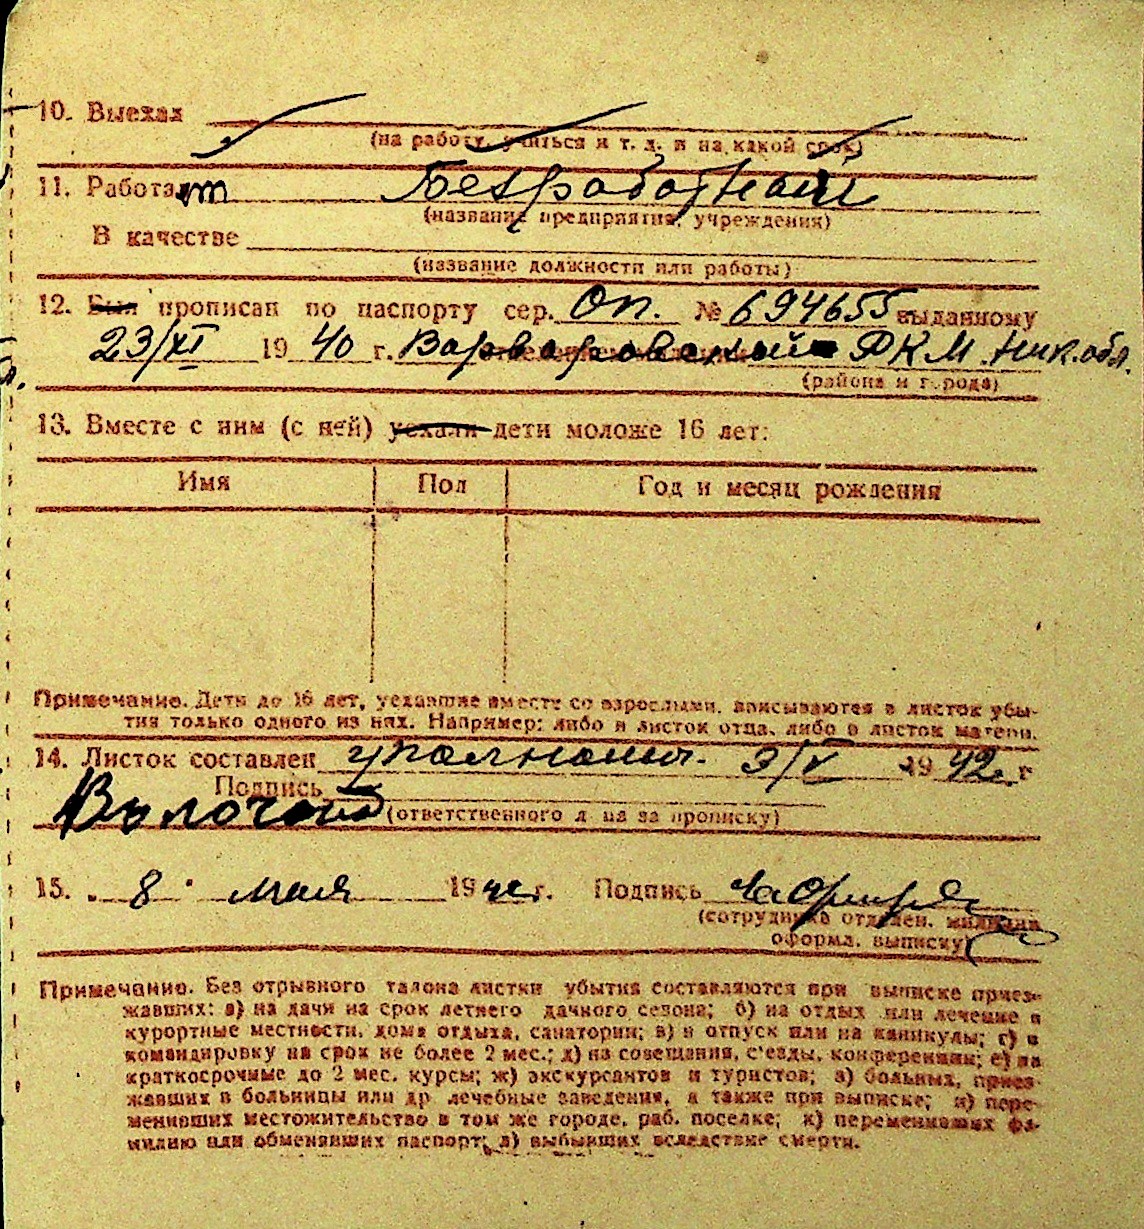 10. Выехал
(на работу, учиться и т. д. и на какой срок)
11. Работает Безработная
(название предприятия, учреждения)
В качестве
(название должности или работы)
12. Был прописан по паспорту сер. ОП. № 694655 выданному
23/XI 1940 г. Варваровский РКМ Ник. обл.
(района и города)
13. Вместе с ним (с ней) уехали дети моложе 16 лет:
Имя Пол Год и месяц рождения
Примечание. Дети до 16 лет, уехавшие вместе со взрослыми, вписываются в листок убы-
тия только одного из них. Например: либо в листок отца, либо в листок матери.
14. Листок составлен 3/V 1942 г
Подпись
(ответственного лица за прописку)
15. „ 8 " мая 1942 г. Подпись
(сотрудника отделен. милиции
оформл. выписку)
Примечание. Без отрывного талона листки убытия составляются при выписке приез-
жавших: а) на дачи на срок летнего дачного сезона; б) на отдых или лечение в
курортные местности, дома отдыха, санатории; в) в отпуск или на каникулы; г) в
командировку на срок не более 2 мес.; д) на совещания, с'езды, конференции; е) на
краткосрочные до 2 мес. курсы; ж) экскурсантов и туристов; з) больных, приез-
жавших в больницы или др лечебные заведения, а также при выписке; и) пере-
менивших местожительство в том же городе, раб. поселке; к) переменивших фа-
милию или обменявших паспорт; л) выбывших вследствие смерти.